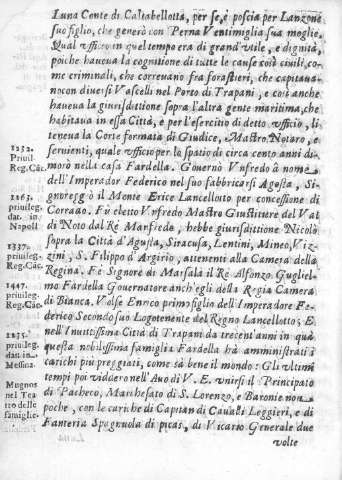 Luna Conte di Caltabellotta, per se, è poscia per Lanzone
suo figlio, che generò con Perna Ventimiglia sua moglie.
Qual vfficio in quel tempo era di grand'vtile, e dignità,
poiche haueua la cognitione di tutte le cause così ciuili, co-
me criminali, che correuano fra forastieri, che capitaua-
no con diuersi Vascelli nel Porto di Trapani, e così anche
haueua la giurisdittione sopra l'altra gente maritima, che
habitaua in essa Città, e per l'esercitio di detto vfficio, li
teneua la Corte formata di Giudice, Mastro Notaro, e
1232.
Priuil.
Reg. Càc.
seruienti, quale vfficio per lo spatio di circa cento anni di-
morò nella casa Fardella. Gouernò Vnfredo à nome
dell'Imperador Federico nel suo fabbricarsi Agosta, Si-
1263.
priuileg.
dat. in
Napoli
gnoreggiò il Monte Erice Lancellotto per concessione di
Corrado. Fù eletto Vnfredo Mastro Giustitiere del Val
di Noto dal Rè Manfredo, hebbe giurisdittione Nicolò
sopra la Città d'Agusta, Siracusa, Lentini, Mineo, Viz-
1337.
priuileg.
Reg. Càc.
zini, S. Filippo d'Argirio, attenenti alla Camera della
Regina. Fè Signore di Marsala il Rè Alfonzo Gugliel-
1447.
priuileg.
Reg. Càc.
mo Fardella Gouernatore anch'egli della Regia Camera
di Bianca. Volse Enrico primo figlio dell'Imperadore Fe-
derico Secondo suo Logotenente del Regno Lancellotto; E
nell'Inuittissima Città di Trapani da trecent'anni in quà
1235.
priuileg.
dat. in
Messina.
questa nobilissima famiglia Fardella hà amministrati i
carichi più preggiati, come sà bene il mondo: Gli vltimi
tempi poi viddero nell'Auo di V. E. vnirsi il Principato
Mugnos
nel Tea
tro delle
famiglie.
di Pacheco, Marchesato di S. Lorenzo, e Baronie non
poche, con le cariche di Capitan di Caualli Leggieri, e di
Fanteria Spagnuola di picas, di Vicario Generale due
volte